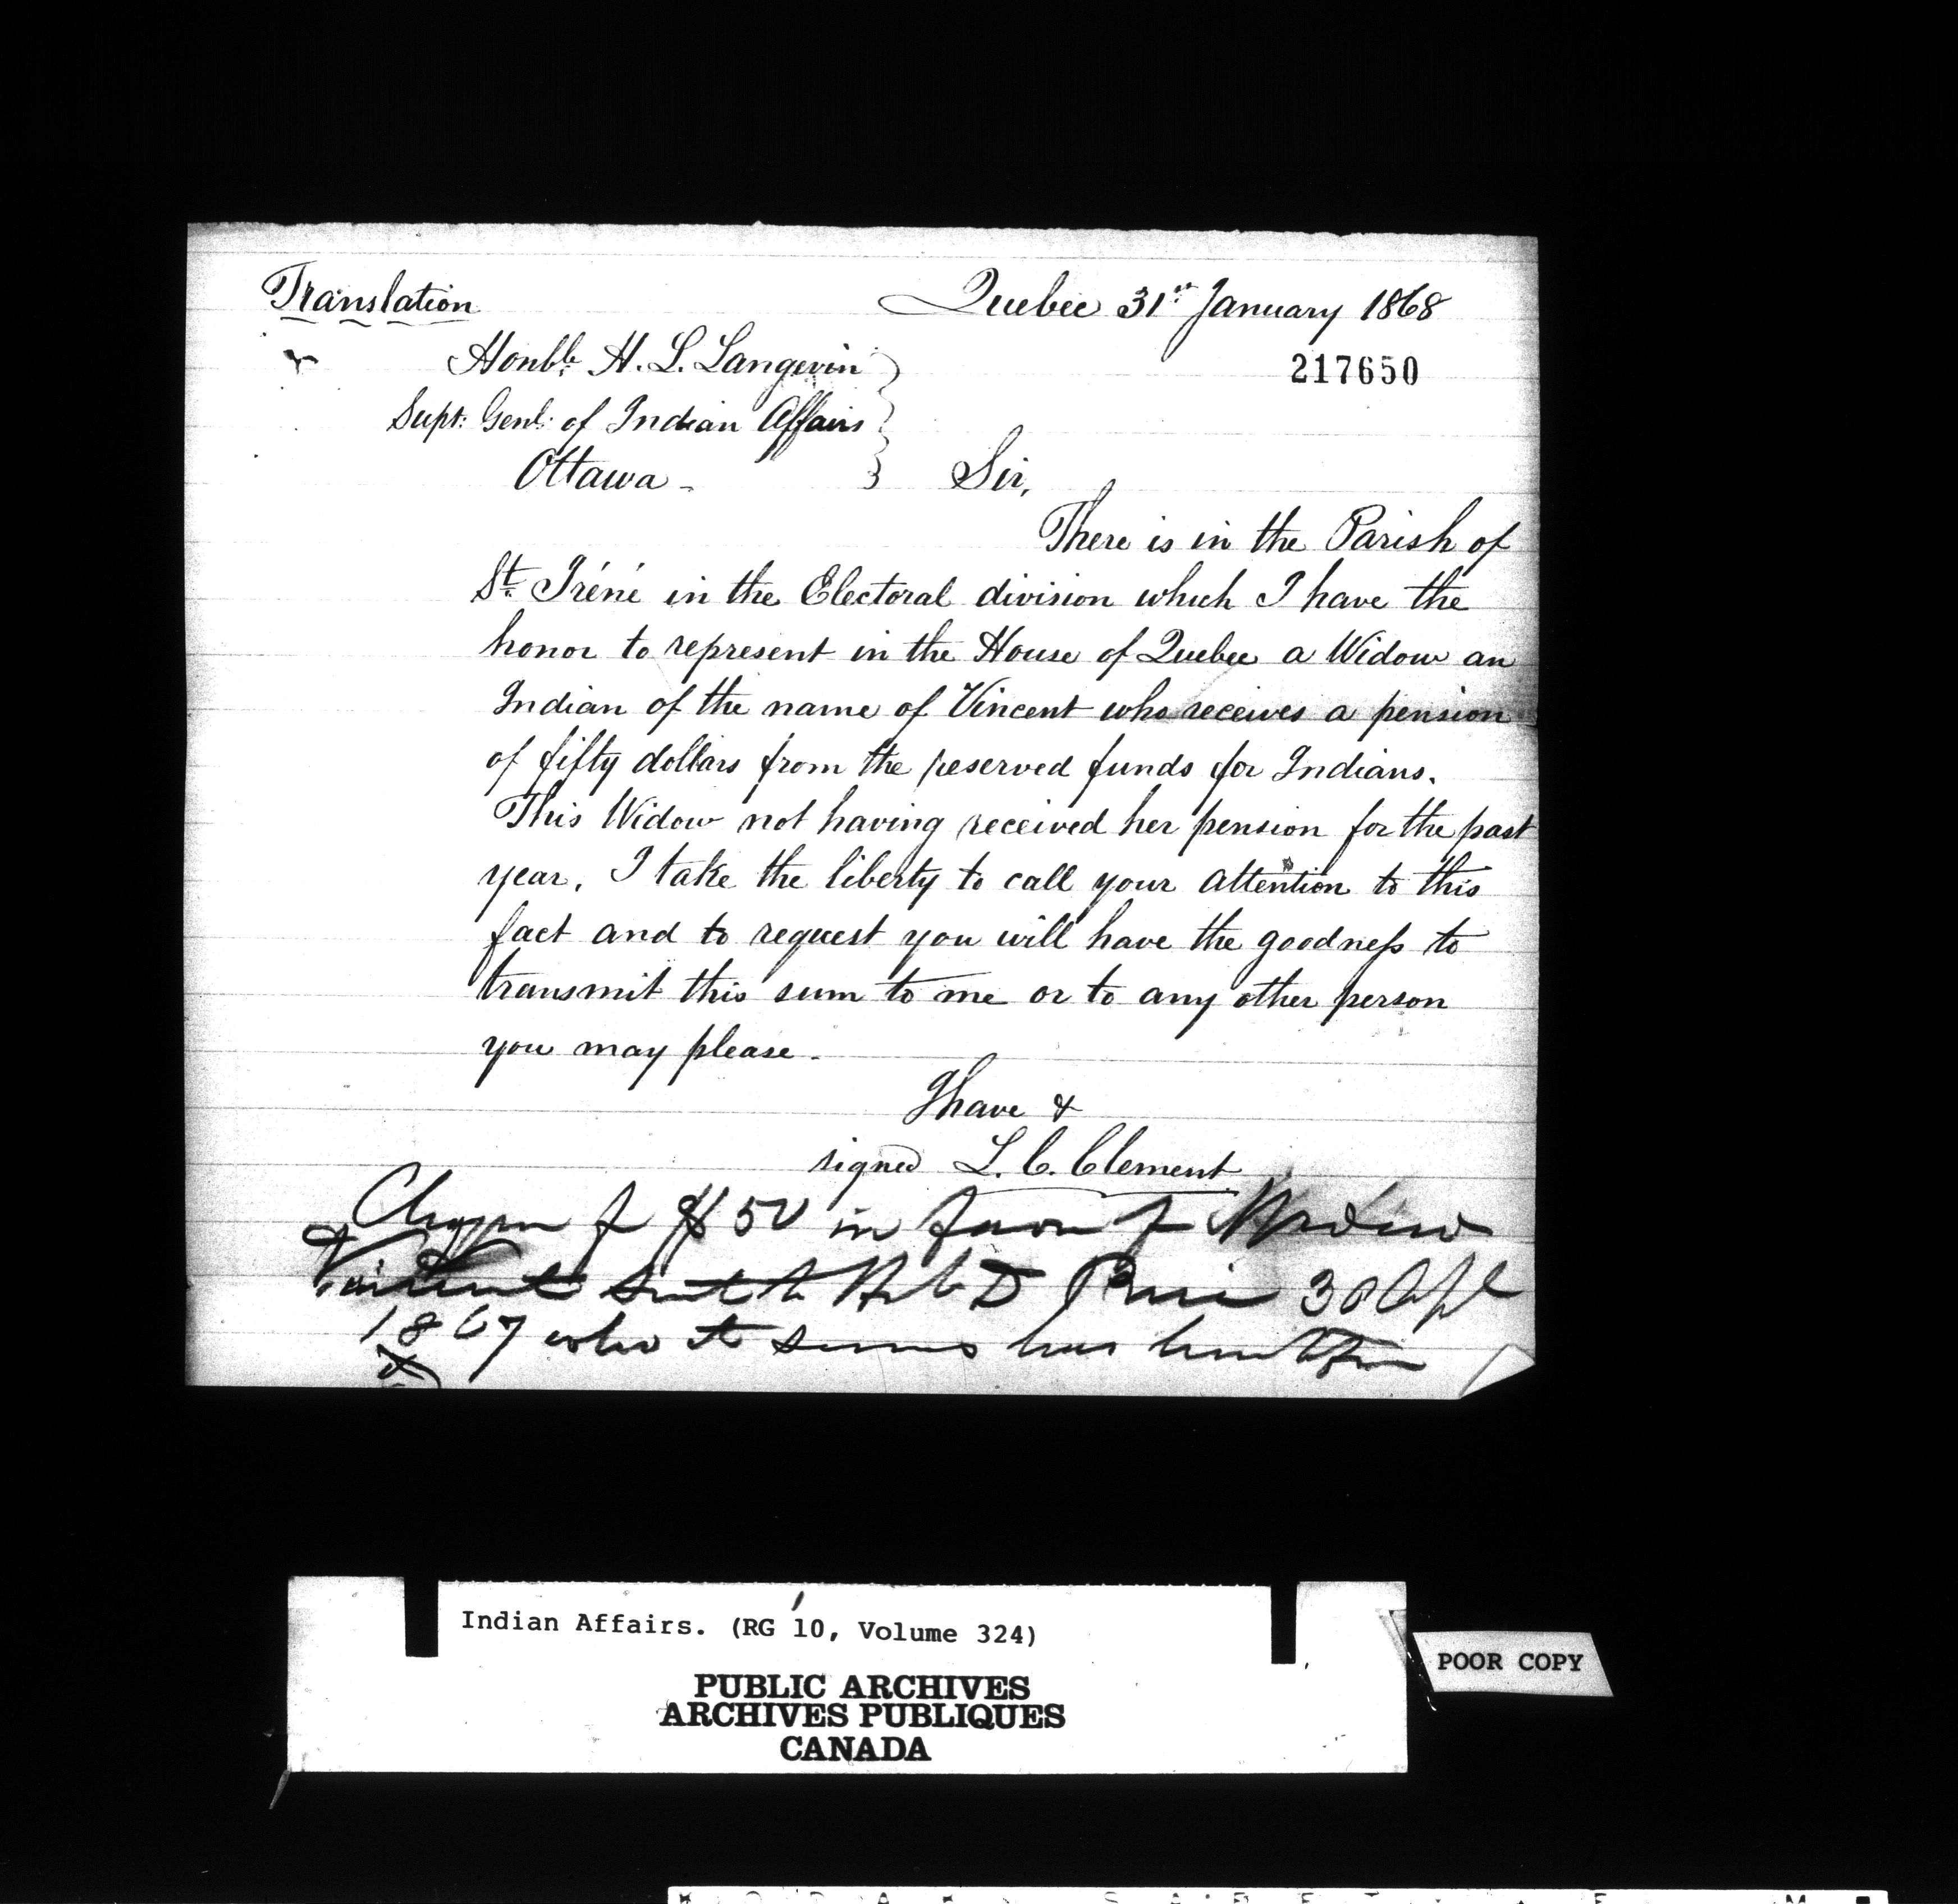 Translation
Quebec 31st January 1868
Honble. H. L. Langevin
217650
Supt. Genl. of Indian Affairs
Ottawa - Sir,
There is in the Parish of
St. Iréné in the Electoral division which I have the
honor to represent in the House of Quebec a Widow an
Indian of the name of Vincent who receives a pension
of fifty dollars from the reserved funds for Indians.
This Widow not having received her pension for the past
year, I take the liberty to call your attention to this
fact and to request you will have the goodness to
transmit this sum to me or to any other person
you may please.
I have &
signed L. C. Clement
of $50 in favor of Widow
Vincent sent to D Price 30 Apl
1867 who it seems has
Indian Affairs. (RG 10, Volume 324)
PUBLIC ARCHIVES
ARCHIVES PUBLIQUES
CANADA
POOR COPY